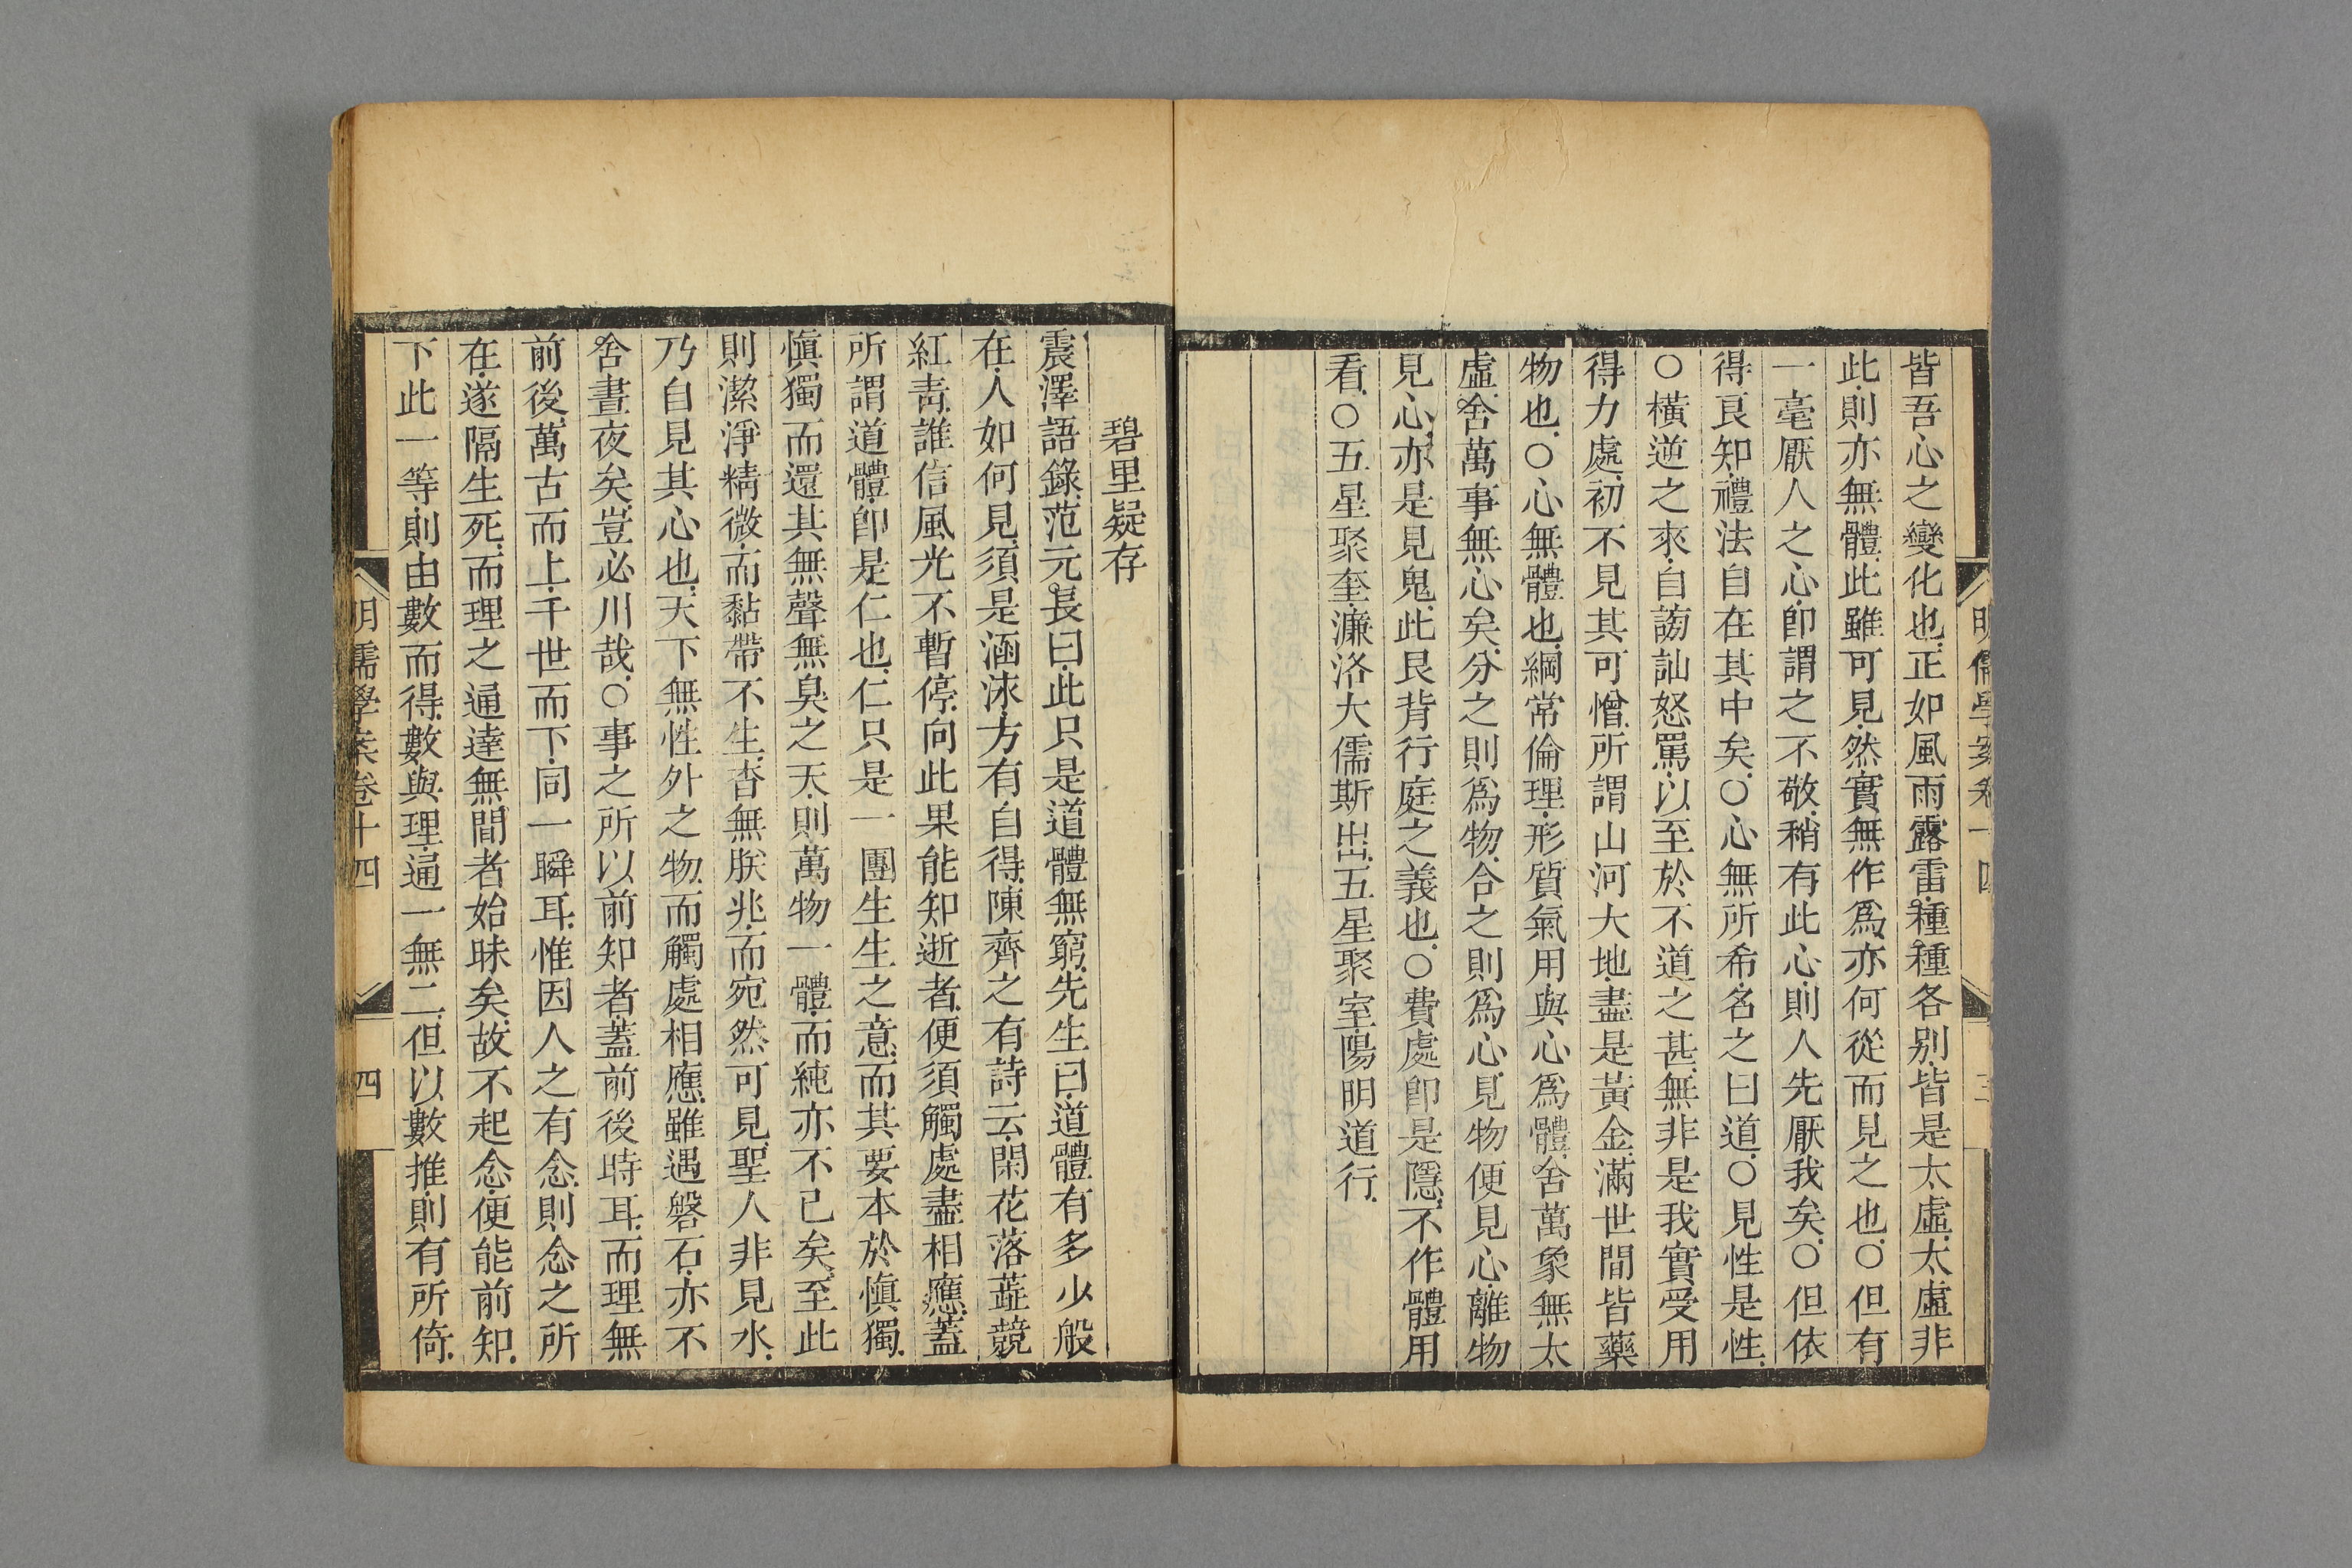 皆吾心之變化也.正如風雨露雷.種種各別.皆是太虛.太虛非
此.則亦無體.此雖可見.然實無作爲.亦何從而見之也.○但有
一毫厭人之心.卽謂之不敬.稍有此心.則人先厭我矣.○但依
得良知.禮法自在其中矣.○心無所希.名之曰道.○見性是性.
○橫逆之來.自謗訕怒罵.以至於不道之甚.無非是我實受用
得力處.初不見其可憎.所謂山河大地.盡是黃金.滿世間皆藥
物也.○心無體也.綱常倫理.形質氣用與心爲體.舍萬象無太
虛.舍萬事無心矣.分之則爲物.合之則爲心.見物便見心.離物
見心.亦是見鬼.此艮背行庭之義也.○費處卽是隱.不作體用
看.○五星聚奎.濂洛大儒斯出.五星聚室.陽明道行.
明儒學案卷十四
三
碧里疑存
震澤語錄.范元長曰.此只是道體無窮.先生曰.道體有多少般
在.人如何見.須是涵泳.方有自得.陳齊之有詩云.閑花落蘂競
紅靑.誰信風光不暫停.向此果能知逝者.便須觸處盡相應.蓋
所謂道體.卽是仁也.仁只是一團生生之意.而其要本於愼獨.
愼獨而還其無聲無臭之天.則萬物一體.而純亦不已矣.至此
則潔淨精微.而黏帶不生.杳無朕兆.而宛然可見.聖人非見水.
乃自見其心也.天下無性外之物.而觸處相應.雖遇磐石.亦不
舍晝夜矣.豈必川哉.○事之所以前知者.蓋前後時耳.而理無
前後.萬古而上.千世而下.同一瞬耳.惟因人之有念.則念之所
在.遂隔生死.而理之通達無間者始昧矣.故不起念.便能前知.
下此一等.則由數而得.數與理.通一無二.但以數推.則有所倚.
明儒學案卷十四
四